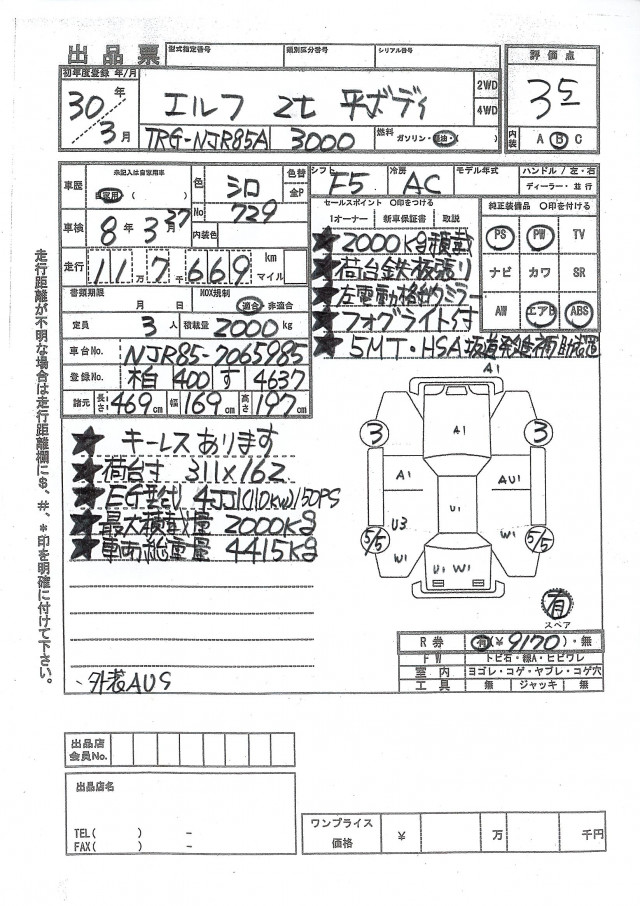 出品票 型式指定番号 類別区分番号 シリアル番号 評価点
初年度登録 年/月
30年 3月
エルフ 2t 平ボディ 2WD 4WD
3 5
TRG-NJR85A 3000 燃料 ガソリン・軽油・( ) 内装 A B C
車歴 未記入は自家用車 自家用 ( 色 シロ 色替 全P No 729
シフト F5 冷房 AC モデル年式 ハンドル / 左・右 ディーラー・並行
車検 8年 3月 27 内装色
セールスポイント 〇印をつける
1オーナー 新車保証書 取説
純正装備品 〇印を付ける
PS PW TV
ナビ カワ SR
AW エアB ABS
走行 11万7千669 km マイル
★2000kg積載
★荷台鉄板張り
★左電動格納ミラー
★フォグライト付
★5MT・HSA坂道発進補助装置
書類期限 月 日 NOX規制 適合 非適合
定員 3人 積載量 2000kg
車台No. NJR85-7065985
登録No. 柏 400 す 4637
諸元 長さ 469cm 幅 169cm 高さ 197cm
★キーレスあります
★荷台寸 311×162
★EG型式 4JJ1(110kw)150PS
★最大積載量 2000kg
★車両総重量 4415kg
外装AUS
A1
3 A1 3
A1 AU1
U1
U3
5/5 W1 W1 5/5
U1 W1
有
スペア
R券 有(¥9170)・無
FW トビ石・線A・ヒビワレ
室内 ヨゴレ・コゲ・ヤブレ・コゲ穴
工具 無 ジャッキ 無
走行距離が不明な場合は走行距離欄に$、#、*印を明確に付けて下さい。
出品店
会員No.
出品店名
TEL( ) -
FAX( ) -
ワンプライス
価格 ¥ 万 千円